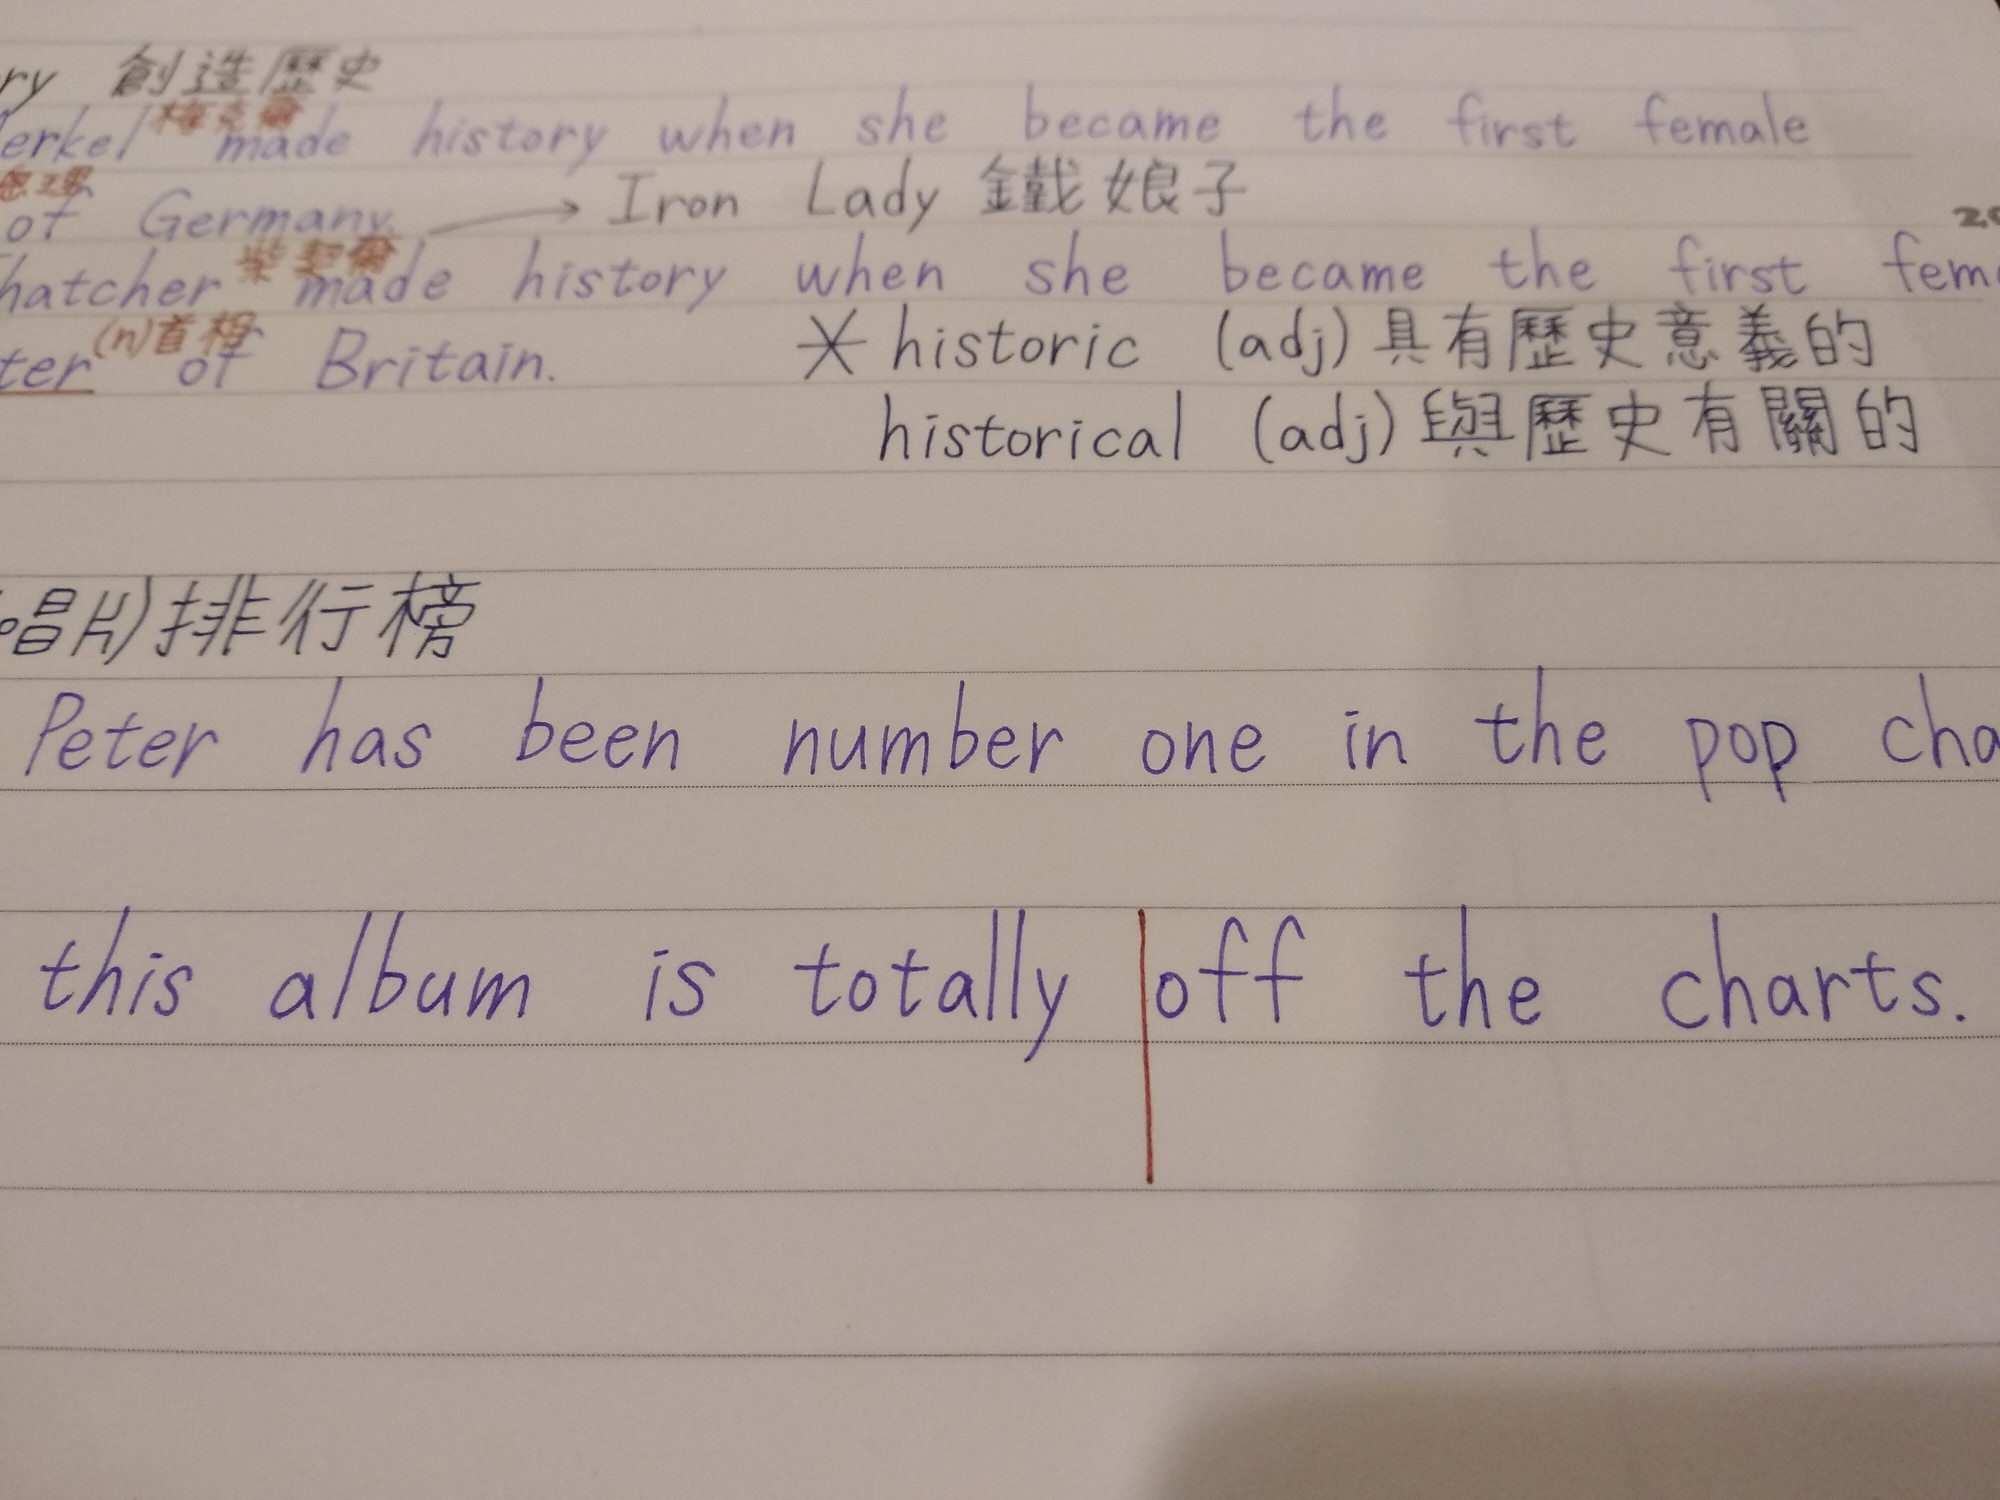 創造歷史
梅克爾
made history when she became the first female
總理
of Germany. → Iron Lady 鐵娘子
20
柴契爾
hatcher made history when she became the first fem
(n)首相
ter of Britain. * historic (adj) 具有歷史意義的
historical (adj) 與歷史有關的
唱片)排行榜
Peter has been number one in the pop cha
this album is totally off the charts.